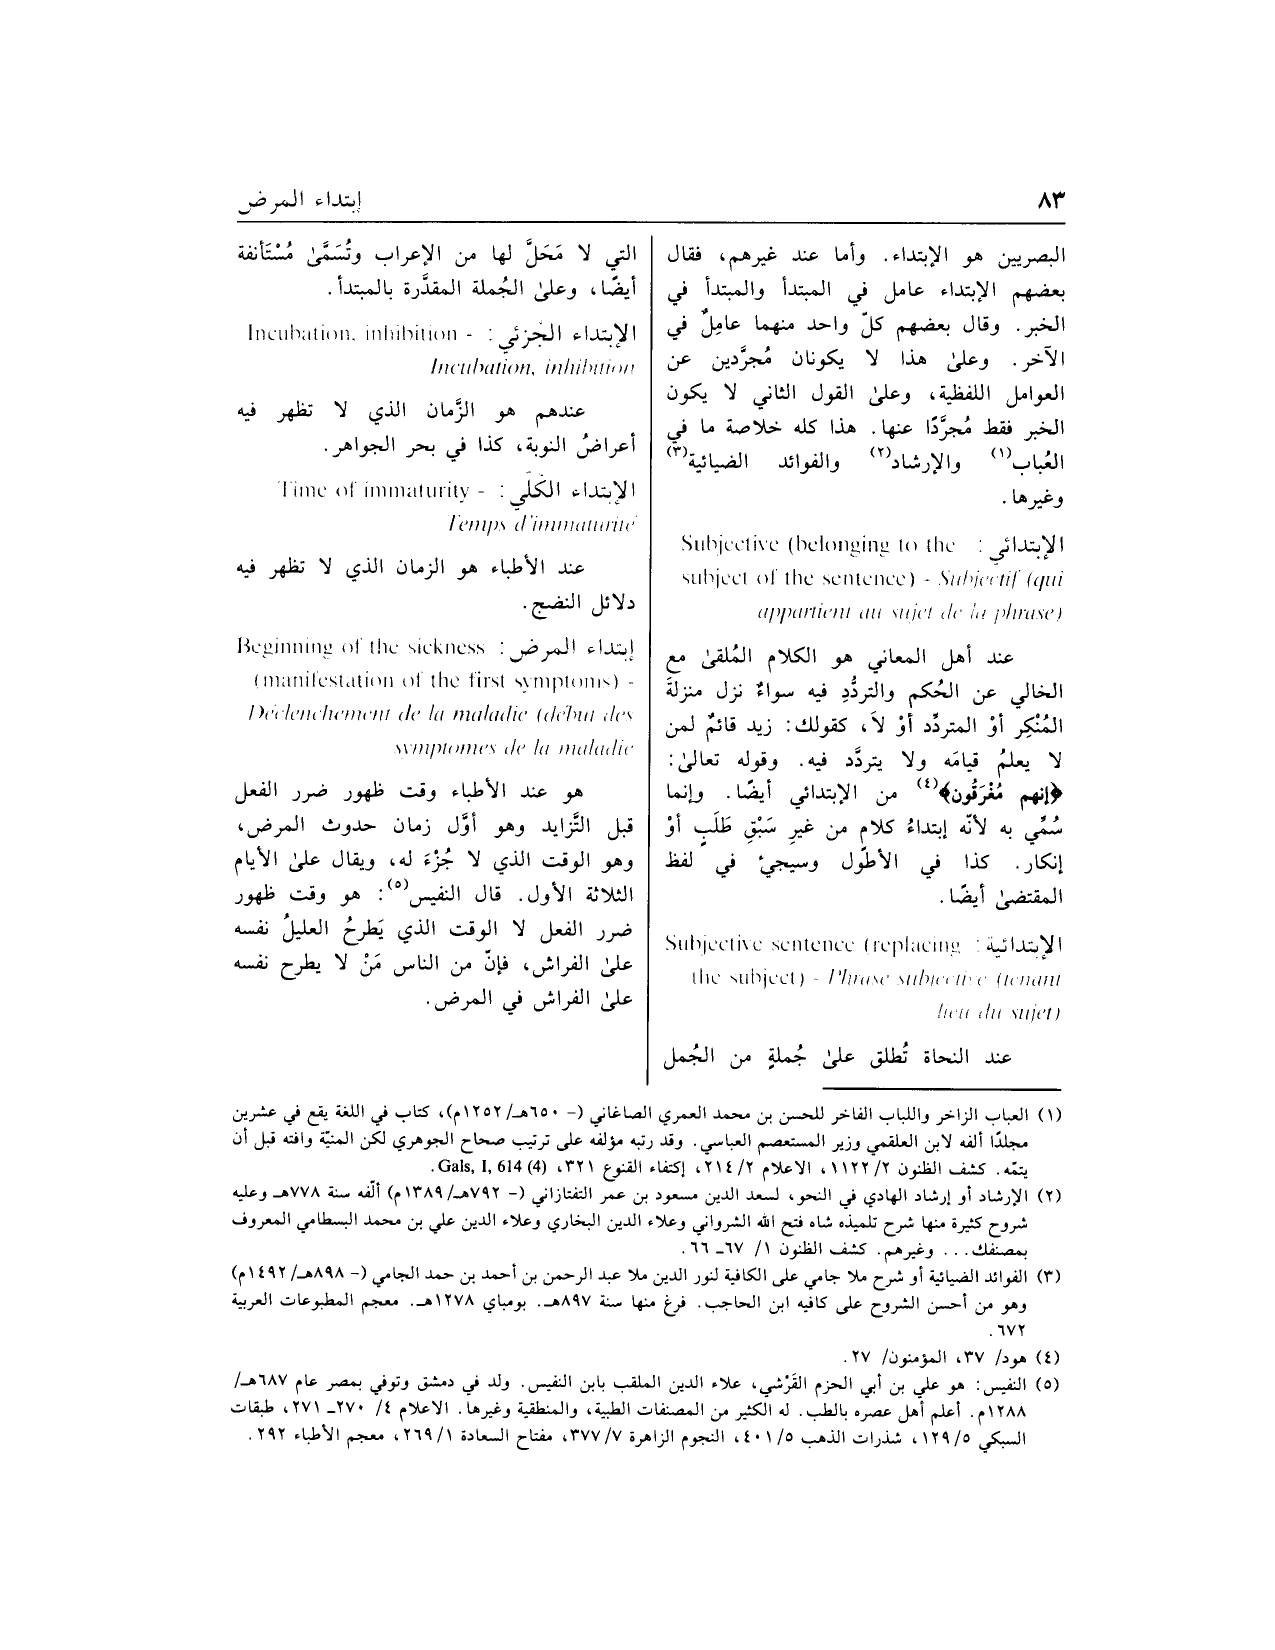 ٨٣
إبتداء المرض
البصريين هو الإبتداء. وأما عند غيرهم، فقال
بعضهم الإبتداء عامل في المبتدأ والمبتدأ في
الخبر. وقال بعضهم كلّ واحد منهما عامِلٌ في
الآخر. وعلىٰ هذا لا يكونان مُجرَّدين عن
العوامل اللفظية، وعلىٰ القول الثاني لا يكون
الخبر فقط مُجرَّدًا عنها. هذا كله خلاصة ما في
العُباب(١) والإرشاد(٢) والفوائد الضيائية(٣)
وغيرها.
الإبتدائي: Subjective (belonging to the
subject of the sentence) - Subjectif (qui
appartient au sujet de la phrase)
عند أهل المعاني هو الكلام المُلقىٰ مع
الخالي عن الحُكم والتردُّدِ فيه سواءٌ نزل منزلةَ
المُنْكِر أوْ المتردِّد أوْ لاَ، كقولك: زيد قائمٌ لمن
لا يعلمُ قيامَه ولا يتردَّد فيه. وقوله تعالىٰ:
﴿إنهم مُغْرَقُون﴾(٤) من الإبتدائي أيضًا. وإنما
سُمِّي به لأنّه إبتداءُ كلام من غيرِ سَبْقِ طَلَبٍ أوْ
إنكار. كذا في الأطول وسيجئ في لفظ
المقتضىٰ أيضًا.
الإبتدائية: Subjective sentence (replacing
the subject) - Phrase subjective (tenant
lieu du sujet)
عند النحاة تُطلق علىٰ جُملةٍ من الجُمل
التي لا مَحَلَّ لها من الإعراب وتُسَمَّىٰ مُسْتَأنفة
أيضًا، وعلىٰ الجُملة المقدَّرة بالمبتدأ.
الإبتداء الجزئي: Incubation, inhibition -
Incubation, inhibition
عندهم هو الزَّمان الذي لا تظهر فيه
أعراضُ النوبة، كذا في بحر الجواهر.
الإبتداء الكلّي: Time of immaturity -
Temps d'immaturité
عند الأطباء هو الزمان الذي لا تظهر فيه
دلائل النضج.
إبتداء المرض: Beginning of the sickness
(manifestation of the first symptoms) -
Déclenchement de la maladie (début des
symptomes de la maladie
هو عند الأطباء وقت ظهور ضرر الفعل
قبل التَّزايد وهو أوَّل زمان حدوث المرض،
وهو الوقت الذي لا جُزْءَ له، ويقال علىٰ الأيام
الثلاثة الأول. قال النفيس(٥): هو وقت ظهور
ضرر الفعل لا الوقت الذي يَطرحُ العليلُ نفسه
علىٰ الفراش، فإنّ من الناس مَنْ لا يطرح نفسه
علىٰ الفراش في المرض.
(١) العباب الزاخر واللباب الفاخر للحسن بن محمد العمري الصاغاني (- ٦٥٠هـ/ ١٢٥٢م)، كتاب في اللغة يقع في عشرين
مجلدًا ألفه لابن العلقمي وزير المستعصم العباسي. وقد رتبه مؤلفه على ترتيب صحاح الجوهري لكن المنيّة وافته قبل أن
يتمّه. كشف الظنون ٢/ ١١٢٢، الاعلام ٢/ ٢١٤، إكتفاء القنوع ٣٢١، Gals, I, 614 (4).
(٢) الإرشاد أو إرشاد الهادي في النحو، لسعد الدين مسعود بن عمر التفتازاني (- ٧٩٢هـ/ ١٣٨٩م) ألّفه سنة ٧٧٨هـ وعليه
شروح كثيرة منها شرح تلميذه شاه فتح الله الشرواني وعلاء الدين البخاري وعلاء الدين علي بن محمد البسطامي المعروف
بمصنفك... وغيرهم. كشف الظنون ١/ ٦٧ـ ٦٦.
(٣) الفوائد الضيائية أو شرح ملا جامي على الكافية لنور الدين ملا عبد الرحمن بن أحمد بن حمد الجامي (- ٨٩٨هـ/ ١٤٩٢م)
وهو من أحسن الشروح على كافيه ابن الحاجب. فرغ منها سنة ٨٩٧هـ. بومباي ١٢٧٨هـ. معجم المطبوعات العربية
٦٧٢.
(٤) هود/ ٣٧، المؤمنون/ ٢٧.
(٥) النفيس: هو علي بن أبي الحزم القَرْشي، علاء الدين الملقب بابن النفيس. ولد في دمشق وتوفي بمصر عام ٦٨٧هـ/
١٢٨٨م. أعلم أهل عصره بالطب. له الكثير من المصنفات الطبية، والمنطقية وغيرها. الاعلام ٤/ ٢٧٠ـ ٢٧١، طبقات
السبكي ٥/ ١٢٩، شذرات الذهب ٥/ ٤٠١، النجوم الزاهرة ٧/ ٣٧٧، مفتاح السعادة ١/ ٢٦٩، معجم الأطباء ٢٩٢.